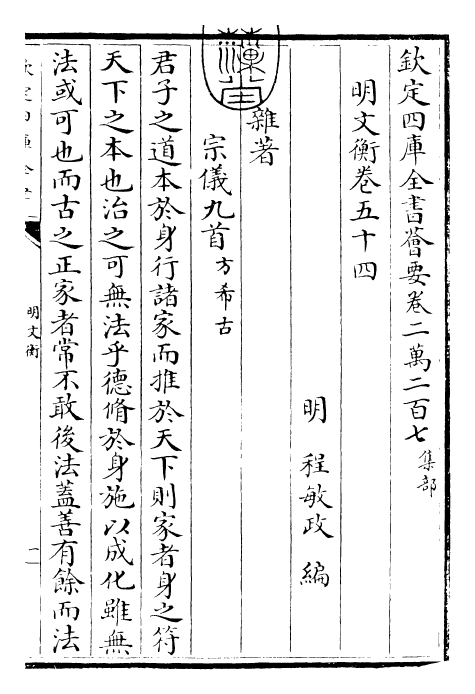 欽定四庫全書薈要卷二萬二百七集部
明文衡卷五十四
明程敏政編
雜著
宗儀九首方希古
君子之道本於身行諸家而推於天下則家者身之符
天下之本也治之可無法乎德脩於身施以成化雖無
法或可也而古之正家者常不敢後法蓋善有餘而法
欽定四庫全書
明文衡
一